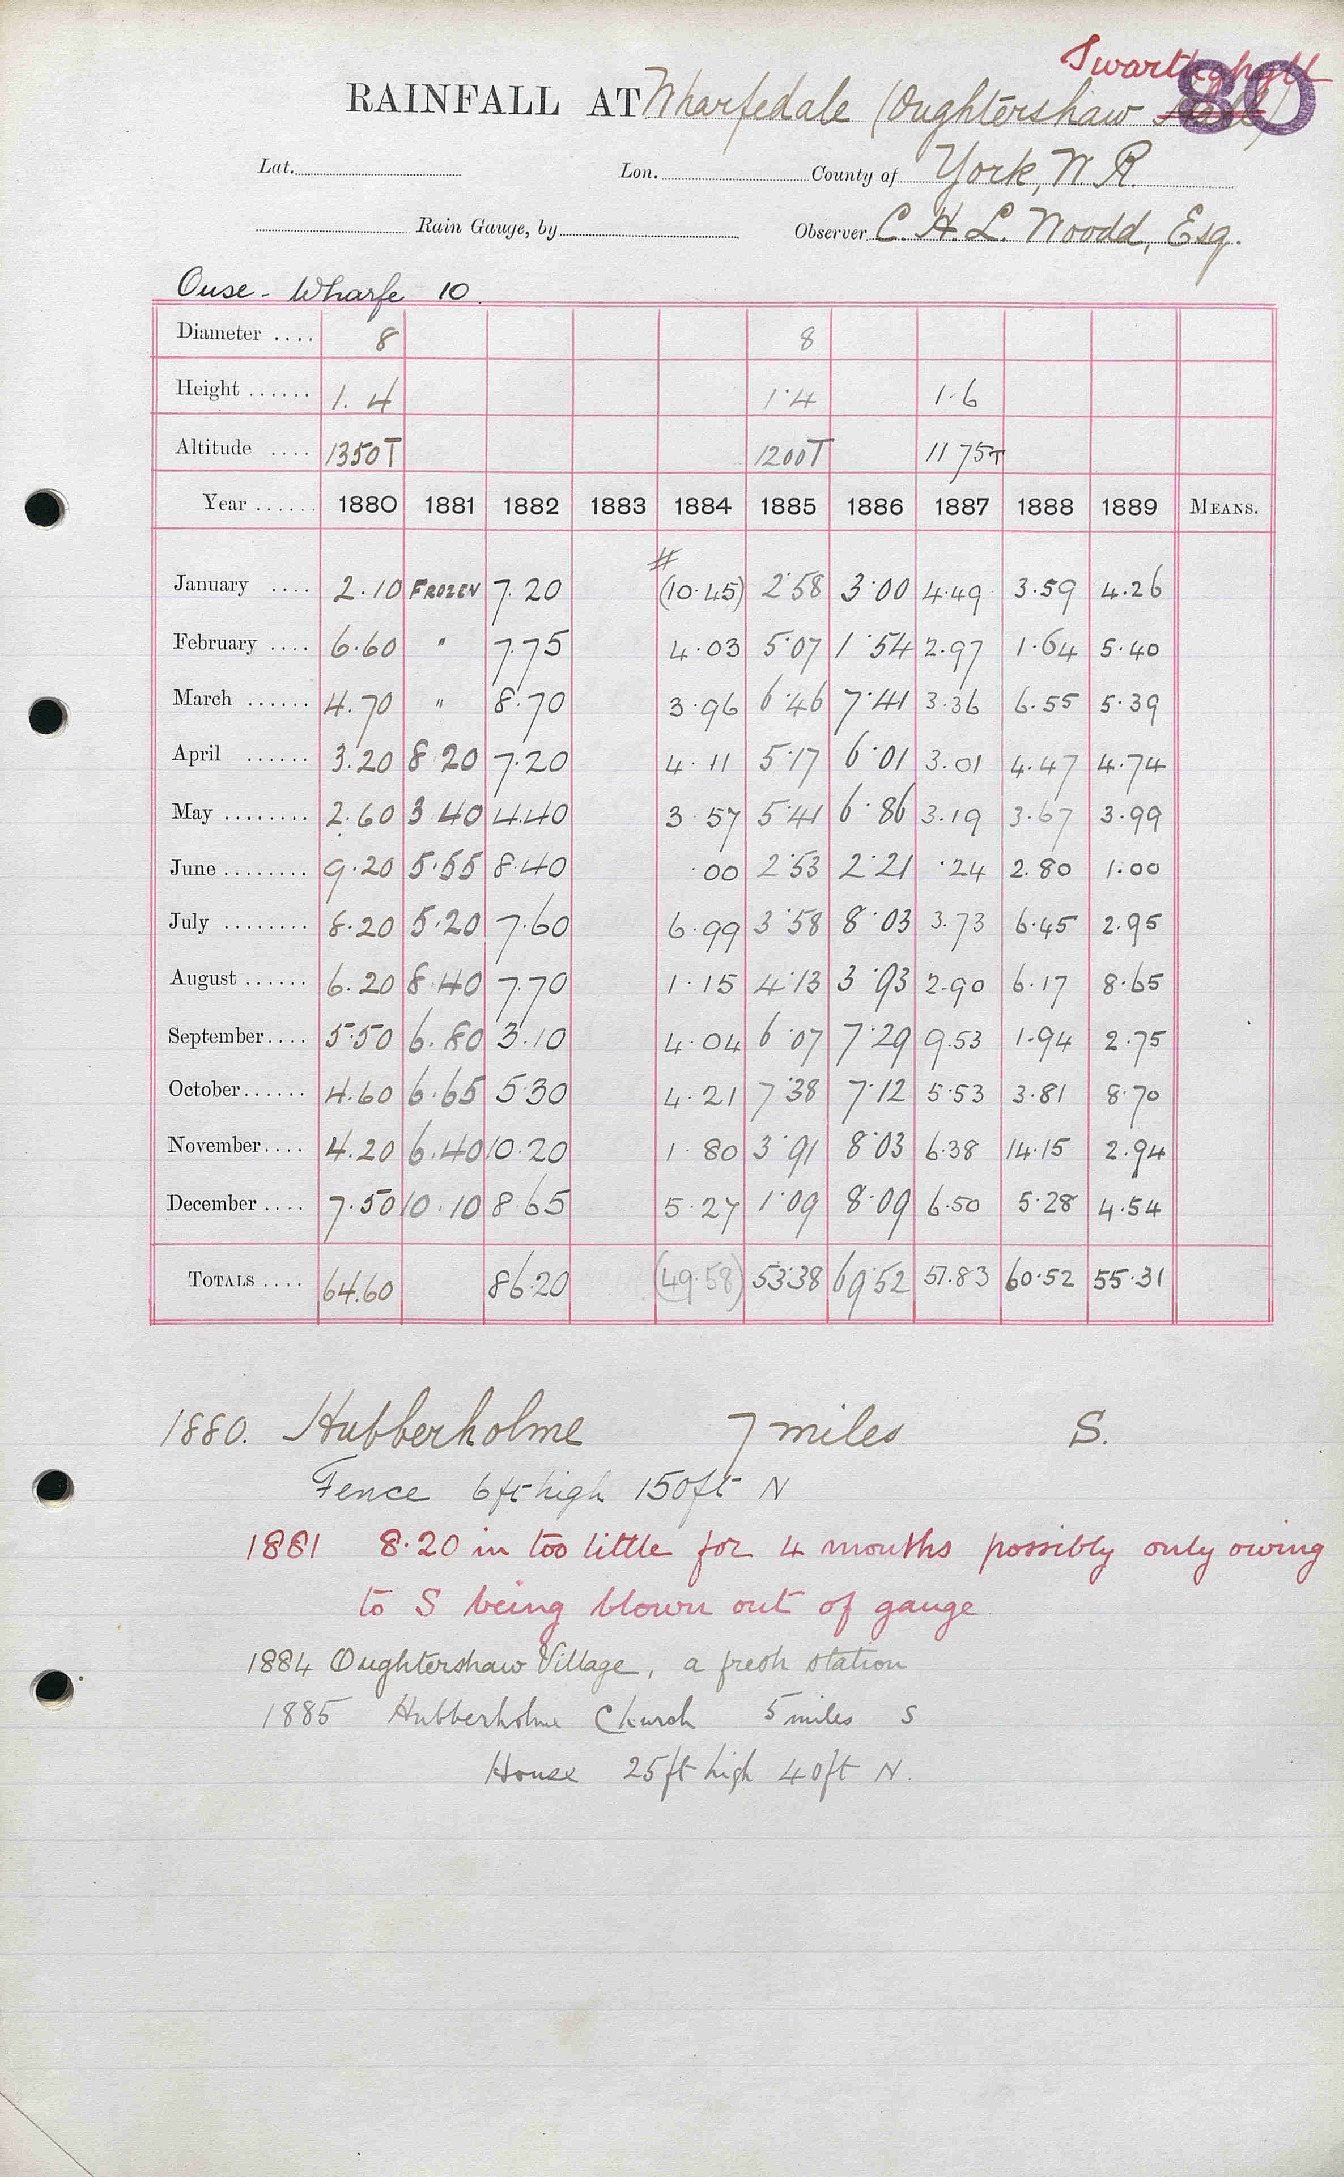 Swarthghyll
80
RAINFALL AT Wharfedale (Oughtershaw Hall)
Lat. Lon. County of York, W R
Rain Gauge, by Observer C. H. L. Woodd, Esq.
Ouse - Wharfe 10.
Diameter .... 8 8
Height ...... 1. 4 1·4 1·6
Altitude .... 1350T 1200T 1175T
Year ...... 1880 1881 1882 1883 1884 1885 1886 1887 1888 1889 MEANS.
#
January .... 2.10 FROZEN 7.20 (10.45) 2·58 3·00 4.49 3.59 4.26
February .... 6.60 " 7.75 4.03 5·07 1·54 2.97 1.64 5.40
March ...... 4.70 " 8.70 3.96 6·46 7·41 3.36 6.55 5.39
April ...... 3.20 8.20 7.20 4.11 5·17 6·01 3.01 4.47 4.74
May ........ 2.60 3.40 4.40 3.57 5·41 6·86 3.19 3.67 3.99
June ........ 9.20 5.55 8.40 .00 2·53 2·21 ·24 2.80 1.00
July ........ 8.20 5.20 7.60 6.99 3·58 8·03 3.73 6.45 2.95
August ...... 6.20 8.40 7.70 1.15 4·13 3·93 2.90 6.17 8.65
September.... 5.50 6.80 3.10 4.04 6·07 7·29 9.53 1.94 2.75
October...... 4.60 6.65 5.30 4.21 7·38 7·12 5.53 3.81 8.70
November.... 4.20 6.40 10.20 1.80 3·91 8·03 6.38 14.15 2.94
December .... 7.50 10.10 8.65 5.27 1·09 8·09 6.50 5.28 4.54
TOTALS .... 64.60 86.20 (49.58) 53.38 69·52 51.83 60.52 55.31
1880. Hubberholme 7 miles S.
Fence 6ft high 150ft N
1881 8.20 in too little for 4 months possibly only owing
to S being blown out of gauge
1884 Oughtershaw Village, a fresh station
1885 Hubberholme Church 5 miles S
House 25ft high 40ft N.